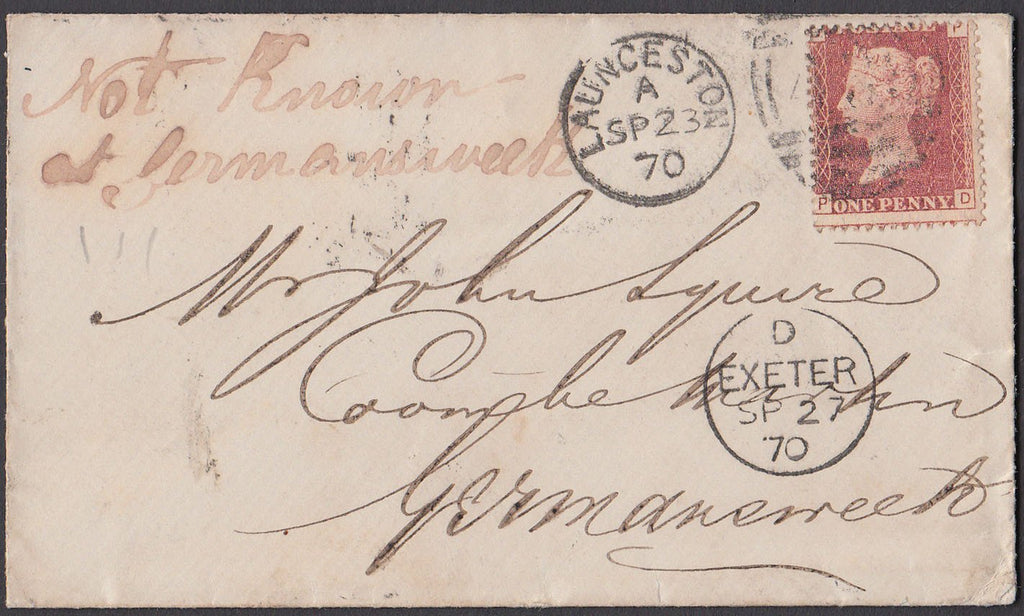 Not Known
at Germansweek
LAUNCESTON
A
SP 23
70
P
ONE PENNY
P D
Mr John Squire
Coombe Martin
Germansweek
D
EXETER
SP 27
70